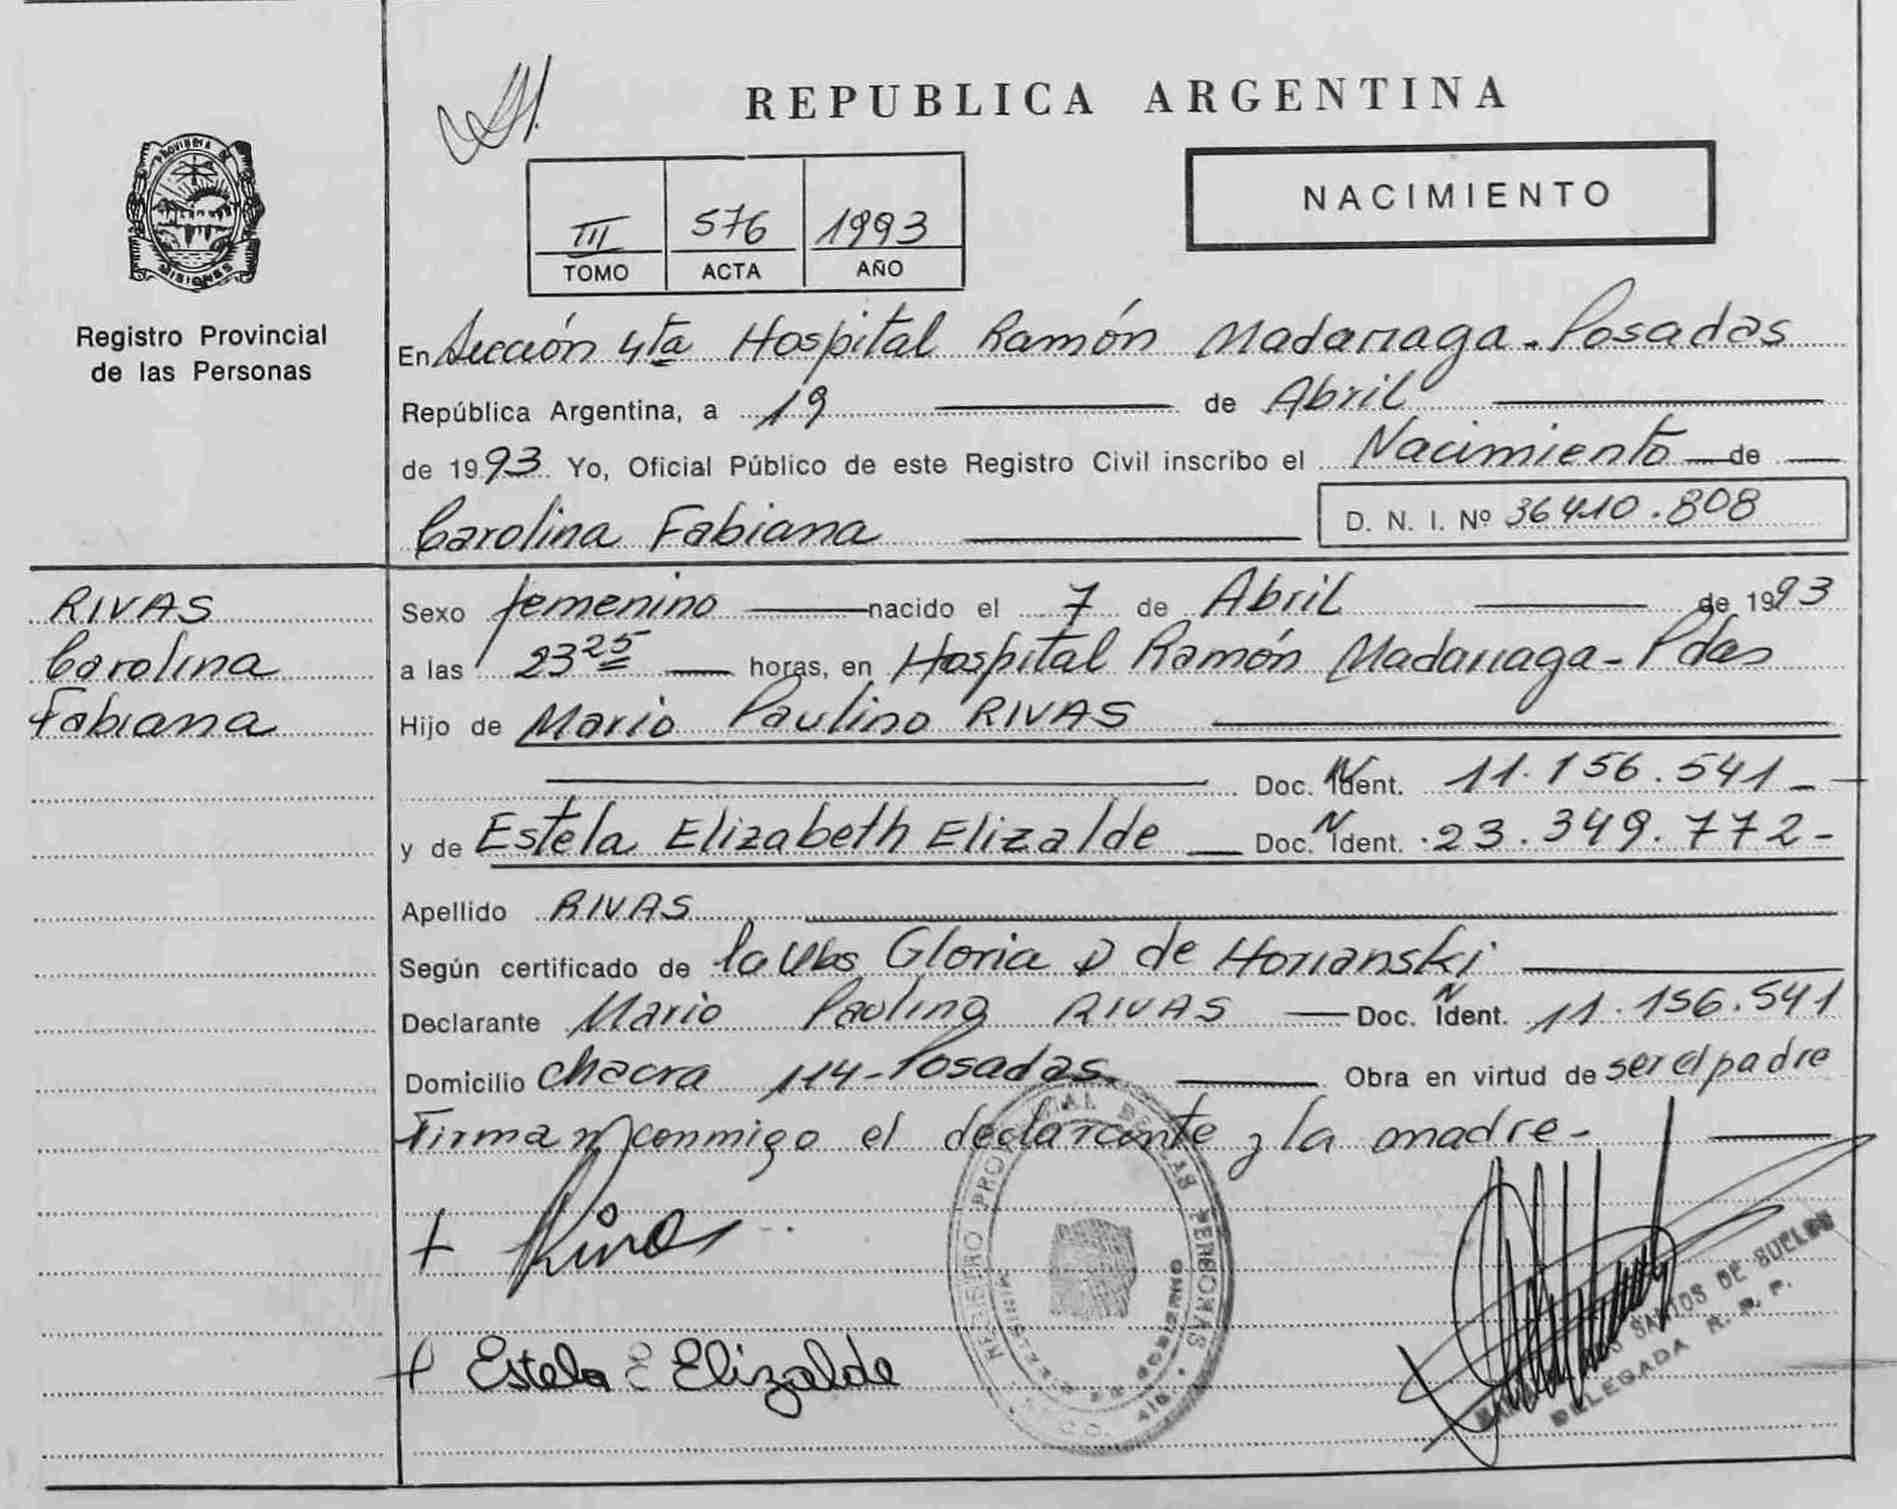 REPUBLICA ARGENTINA
PROVINCIA DE MISIONES
Registro Provincial
de las Personas
III 576 1993
TOMO ACTA AÑO
NACIMIENTO
En Sección 4ta Hospital Ramón Madariaga - Posadas
República Argentina, a 19 de Abril
de 1993 Yo, Oficial Público de este Registro Civil inscribo el Nacimiento de
Carolina Fabiana D. N. I. Nº 36410.808
RIVAS
Carolina
Fabiana
Sexo femenino nacido el 7 de Abril de 1993
a las 23 25 horas, en Hospital Ramón Madariaga - Pdas
Hijo de Mario Paulino RIVAS
Doc. N Ident. 11.156.541 -
y de Estela Elizabeth Elizalde Doc. N Ident. 23.349.772 -
Apellido RIVAS
Según certificado de la Gloria D de
Declarante Mario Paulino RIVAS Doc. N Ident. 11.156.541
Domicilio Chacra 114 - Posadas Obra en virtud de ser el padre
Firman conmigo el declarante y la madre -
+ Rivas
+ Estela E Elizalde
REGISTRO PROVINCIAL DE LAS PERSONAS
SANTOS DE
DELEGADA R. P. P.